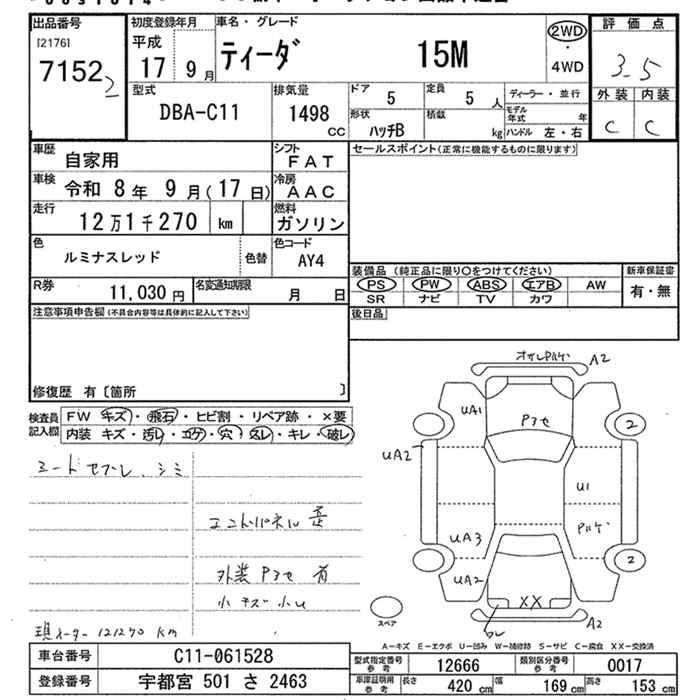 出品番号
[2176]
7152
初度登録年月
平成
17 9 月
車名・グレード
ティーダ 15M
2WD
4WD
評 価 点
3.5
外装 内装
C C
型式
DBA-C11
排気量
1498
CC
ドア
5
定員
5 人
形状
ハッチB
積載
kg
ディーラー・並行
モデル年式 年
ハンドル 左・右
車歴
自家用
シフト
FAT
車検
令和 8 年 9 月(17 日)
冷房
AAC
走行
12 万 1 千 270 km
燃料
ガソリン
色
ルミナスレッド
色替
色コード
AY4
R券
11,030 円
名変通知期限
月 日
セールスポイント(正常に機能するものに限ります)
装備品 (純正品に限り〇をつけてください)
PS PW ABS エアB AW
SR ナビ TV カワ
新車保証書
有・無
後日品
注意事項申告欄(不具合内容等は具体的に記入して下さい)
修復歴 有〔箇所 〕
検査員記入欄
FW キズ・飛石・ヒビ割・リペア跡・×要
内装 キズ・汚レ・コゲ・穴・スレ・キレ・破レ
シミ
外装 有
現メーター121270 km
A2
UA1
2
UA2
U1
UA3
UA2
2
XX
A2
スペア
A-キズ E-エクボ U-凹み W-補修跡 S-サビ C-腐食 XX-交換済
車台番号
C11-061528
登録番号
宇都宮 501 さ 2463
型式指定番号
参考
12666
類別区分番号
参考
0017
車庫証明用
参考
長さ
420 cm
幅
169 cm
高さ
153 cm